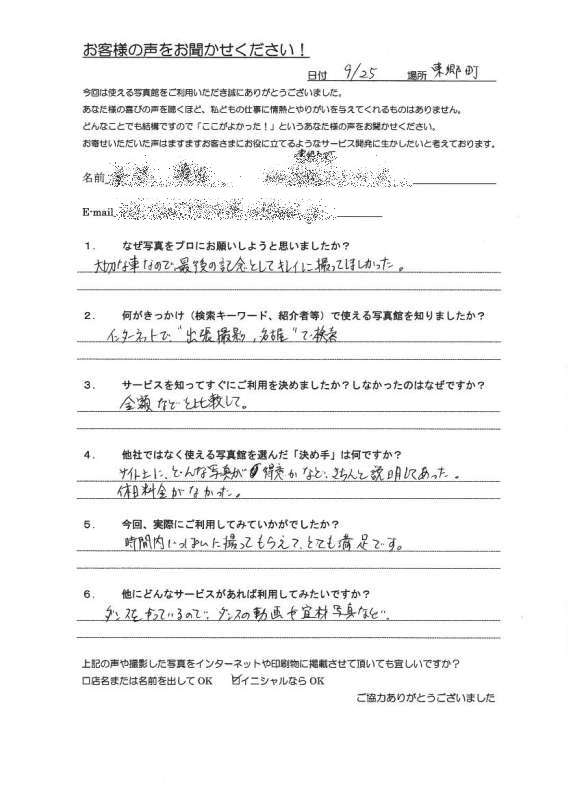 お客様の声をお聞かせください！
日付 9/25 場所 東郷町
今回は使える写真館をご利用いただき誠にありがとうございました。
あなた様の喜びの声を聴くほど、私どもの仕事に情熱とやりがいを与えてくれるものはありません。
どんなことでも結構ですので「ここがよかった！」というあなた様の声をお聞かせください。
お寄せいただいた声はますますお客さまにお役に立てるようなサービス開発に生かしたいと考えております。
名前
E-mail
１． なぜ写真をプロにお願いしようと思いましたか？
大切な車なので最後の記念としてキレイに撮ってほしかった。
２． 何がきっかけ（検索キーワード、紹介者等）で使える写真館を知りましたか？
インターネットで"出張撮影，名古屋"で検索
３． サービスを知ってすぐにご利用を決めましたか？しなかったのはなぜですか？
金額などを比較して。
４． 他社ではなく使える写真館を選んだ「決め手」は何ですか？
サイト上に、どんな写真が 得意かなど、きちんと説明してあった。
休日料金がなかった。
５． 今回、実際にご利用してみていかがでしたか？
時間内いっぱいに撮ってもらえて、とても満足です。
６． 他にどんなサービスがあれば利用してみたいですか？
ダンスをやっているので、ダンスの動画や宣材写真など。
上記の声や撮影した写真をインターネットや印刷物に掲載させて頂いても宜しいですか？
□店名または名前を出して OK ☑イニシャルなら OK
ご協力ありがとうございました